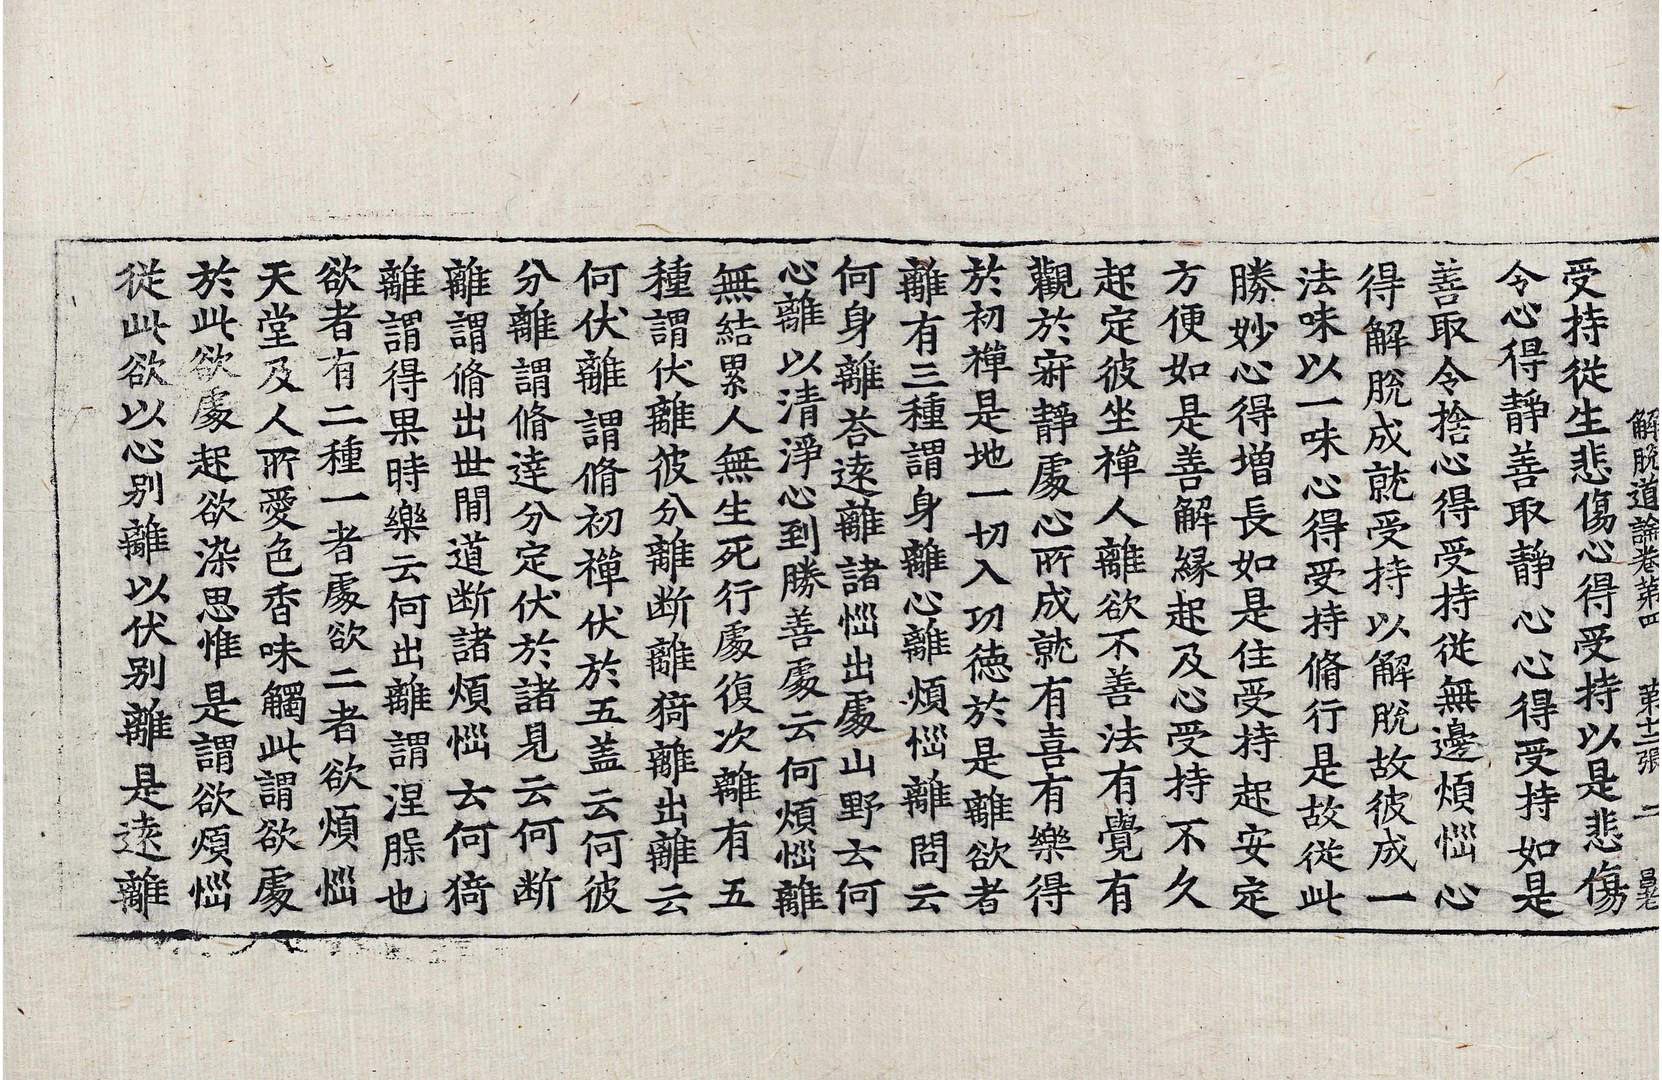 解脫道論卷第四 第十二張 二
受持從生悲傷心得受持以是悲傷
令心得靜善取靜心心得受持如是
善取令捨心得受持從無邊煩惱心
得解脫成就受持以解脫故彼成一
法味以一味心得受持脩行是故從此
勝妙心得增長如是住受持起安定
方便如是善解緣起及心受持不久
起定彼坐禪人離欲不善法有覺有
觀於寂靜處心所成就有喜有樂得
於初禪是地一切入功德於是離欲者
離有三種謂身離心離煩惱離問云
何身離荅遠離諸惱出處山野云何
心離以清淨心到勝善處云何煩惱離
無結累人無生死行處復次離有五
種謂伏離彼分離斷離猗離出離云
何伏離謂脩初禪伏於五盖云何彼
分離謂脩達分定伏於諸見云何斷
離謂脩出世間道斷諸煩惱云何猗
離謂得果時樂云何出離謂涅槃也
欲者有二種一者處欲二者欲煩惱
天堂及人所愛色香味觸此謂欲處
於此欲處起欲染思惟是謂欲煩惱
從此欲以心别離以伏别離是遠離